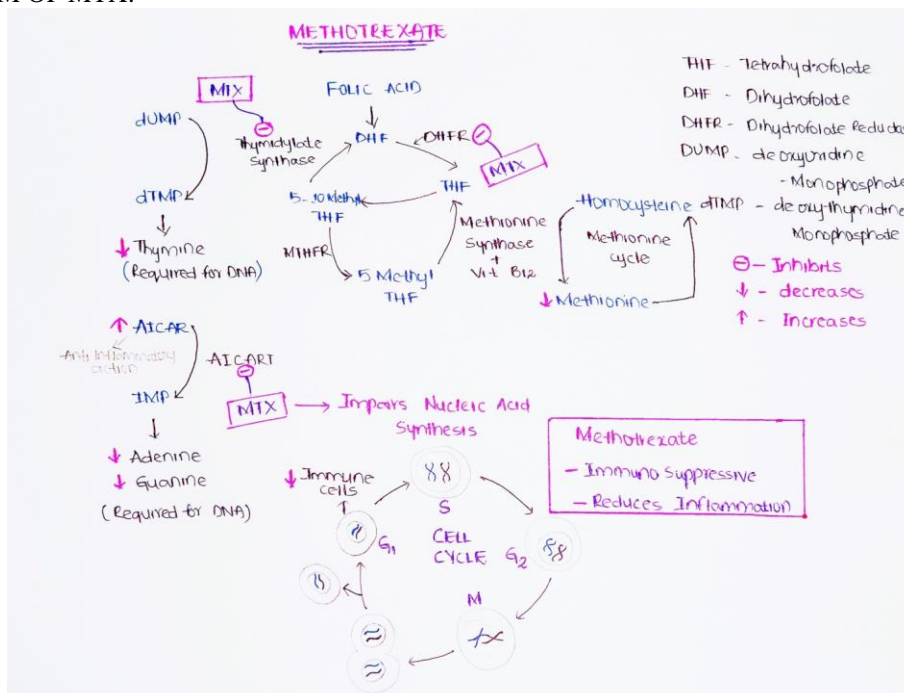 M OF MTX.
METHOTREXATE
MTX
FOLIC ACID
dUMP
Thymidylate
Synthase
DHF
DHFR
MTX
dTMP
5-10 Methyl
THF
THF
Thymine
(Required for DNA)
MTHFR
5 Methyl
THF
Methionine
Synthase
+
Vit B12
Homocysteine
Methionine
cycle
Methionine
THF - Tetrahydrofolate
DHF - Dihydrofolate
DHFR - Dihydrofolate Reductas
DUMP - deoxyuridine
- Monophosphate
dTMP - deoxythymidine
Monophosphate
⊖ - Inhibits
↓ - decreases
↑ - Increases
↑ AICAR
Anti Inflammatory
action
AICART
IMP
MTX → Impairs Nucleic Acid
Synthesis
↓ Adenine
↓ Guanine
(Required for DNA)
↓ Immune
cells
Methotrexate
- Immuno Suppressive
- Reduces Inflammation
S
G1
CELL
CYCLE
G2
M